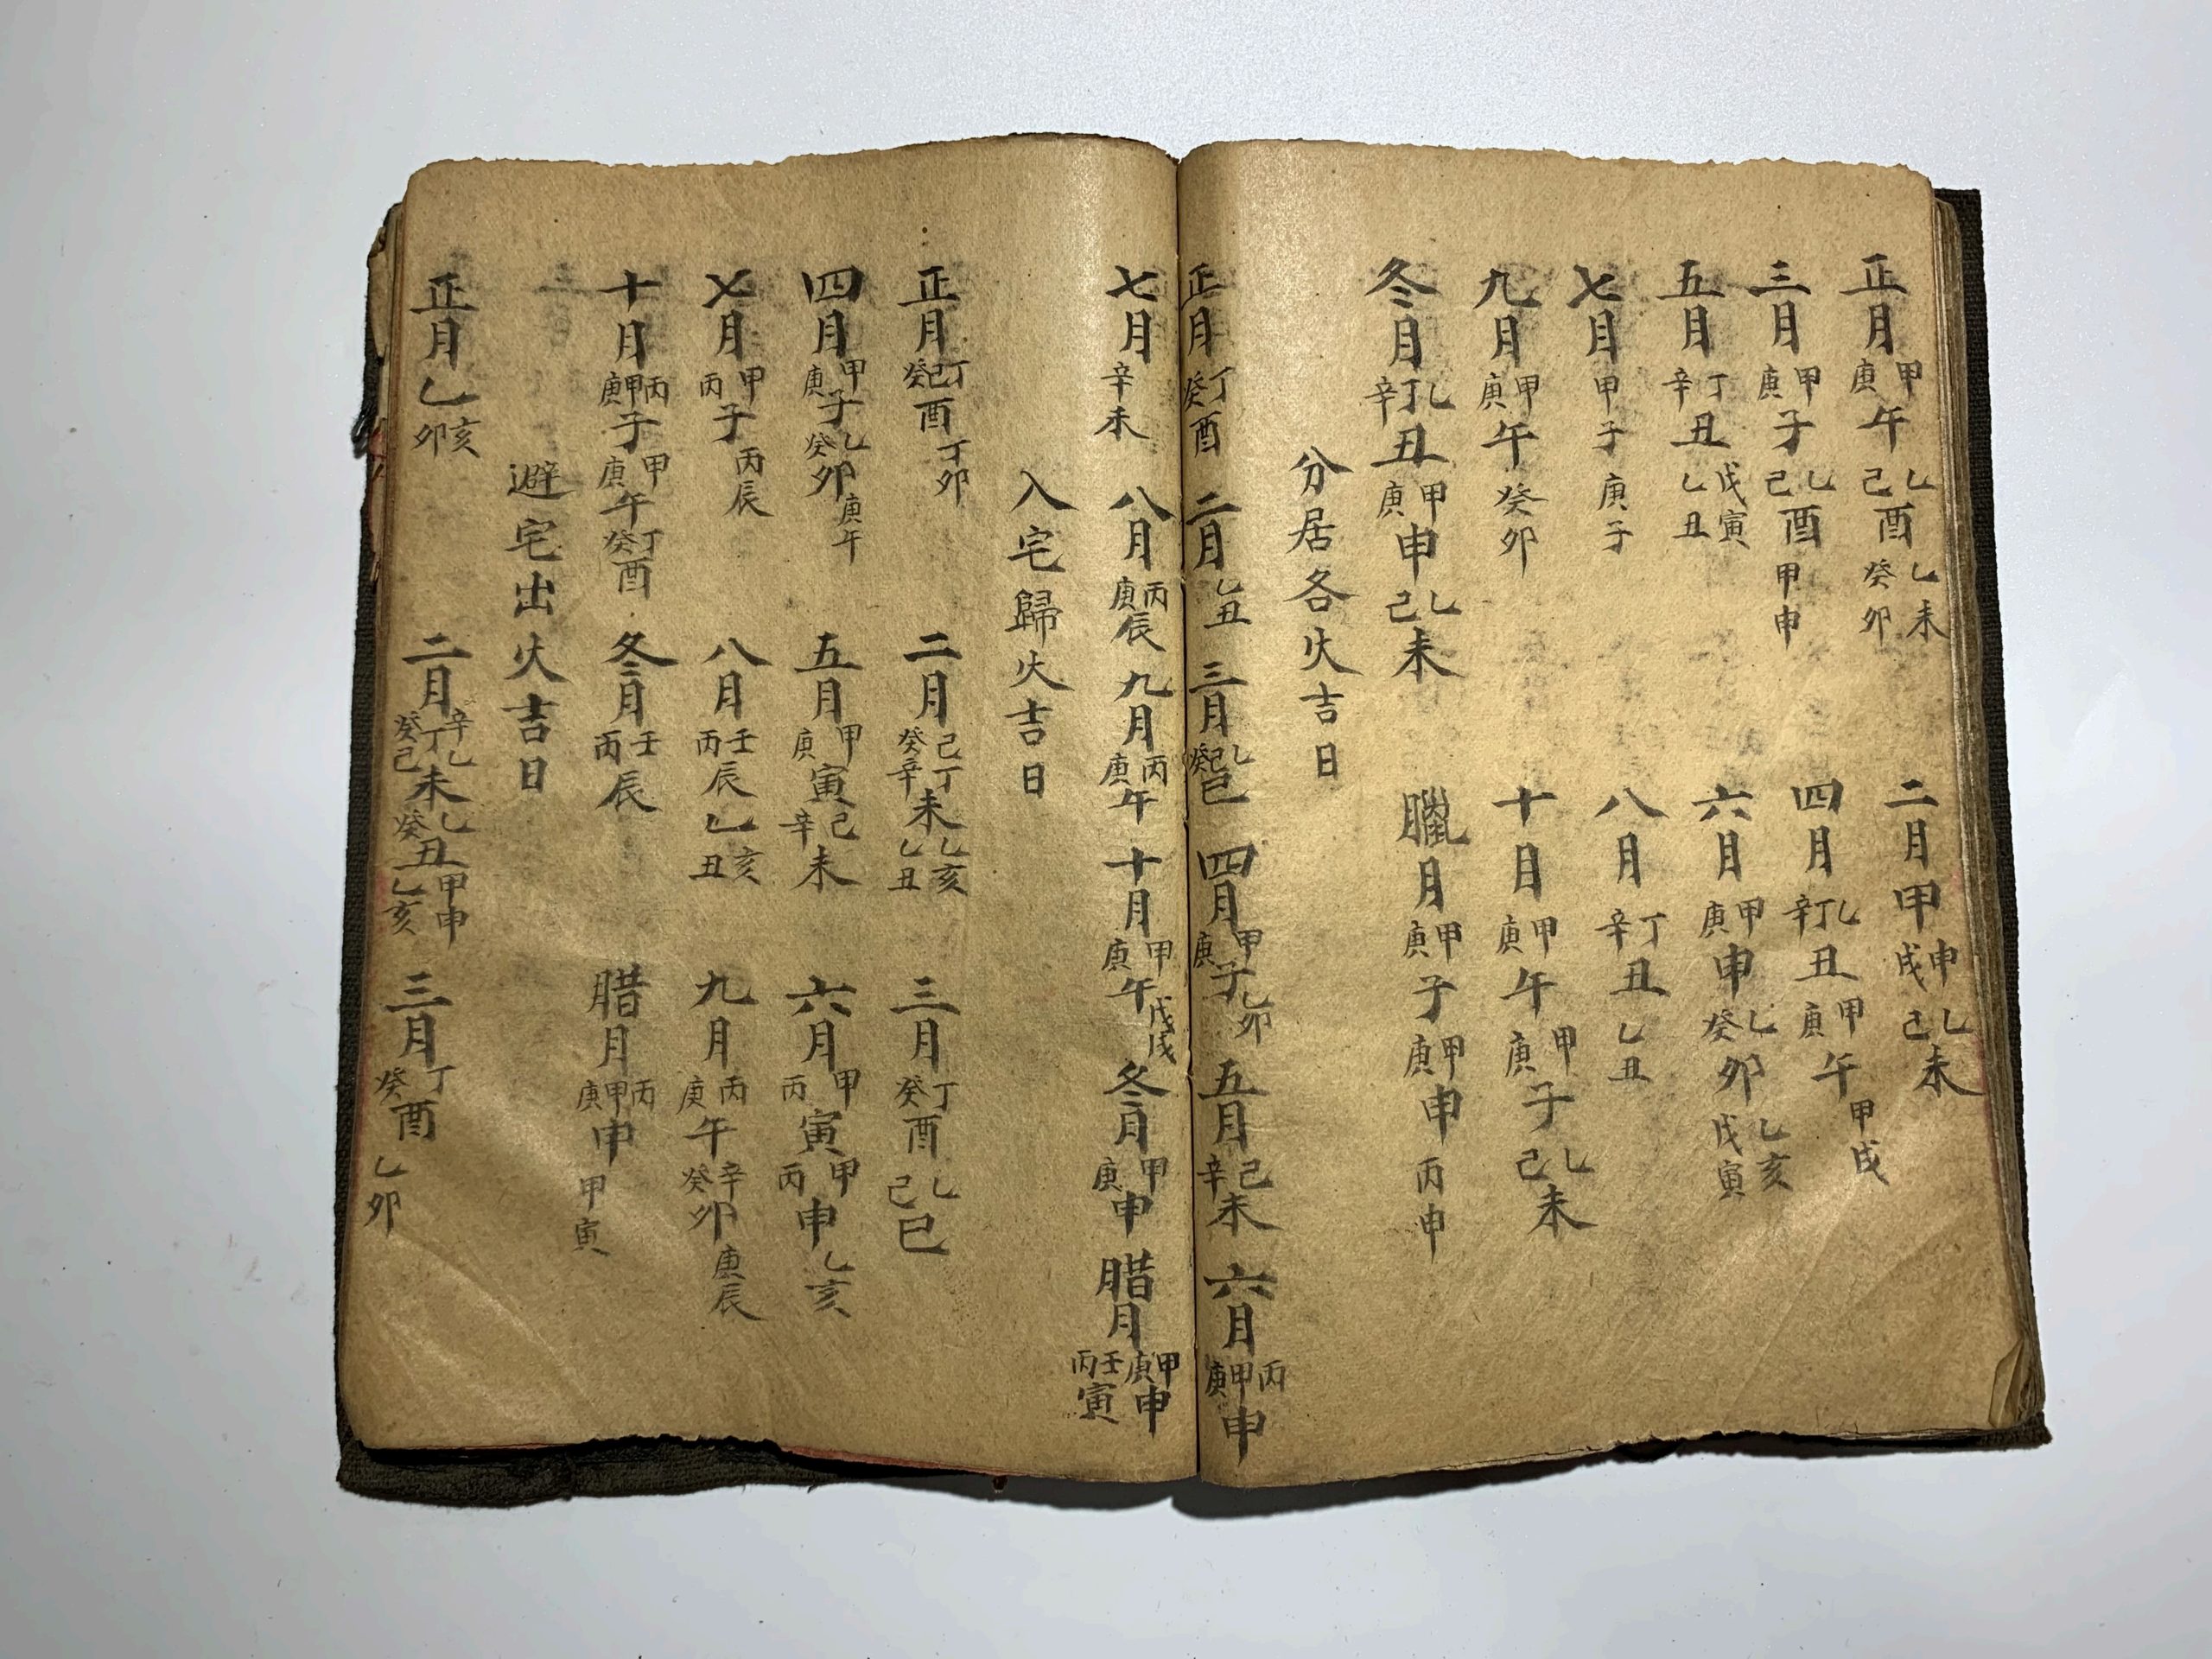 正月甲庚午乙己酉乙未癸卯 二月甲申戌乙己未
三月甲庚子乙己酉甲申 四月乙丁辛丑甲庚午甲戌
五月丁辛丑戊寅乙丑 六月甲庚申乙癸卯乙亥戊寅
七月甲子庚子 八月丁辛丑乙丑
九月甲庚午癸卯 十月甲庚午甲庚子乙己未
冬月乙丁辛丑甲庚申乙己未 臘月甲庚子甲庚申丙申
分居各火吉日
正月丁癸酉 二月乙丑 三月乙己癸巳 四月甲庚子乙卯 五月己辛未 六月丙甲庚申
七月辛未 八月丙庚辰 九月丙庚午 十月甲庚午戊戌 冬月甲庚申 腊月甲庚申壬丙寅
入宅歸火吉日
正月丁己癸酉丁卯 二月己丁癸辛未乙亥乙丑 三月丁癸酉乙己巳
四月甲庚子乙癸卯庚午 五月甲庚寅己辛未 六月甲丙寅甲丙申乙亥
七月甲丙子丙辰 八月壬丙辰乙亥乙丑 九月丙庚午辛癸卯庚辰
十月丙甲庚子甲庚午丁癸酉 冬月壬丙辰 腊月丙甲庚申甲寅
避宅出火吉日
正月乙亥卯 二月辛乙丁癸己未乙癸丑甲申乙亥 三月丁癸酉乙卯